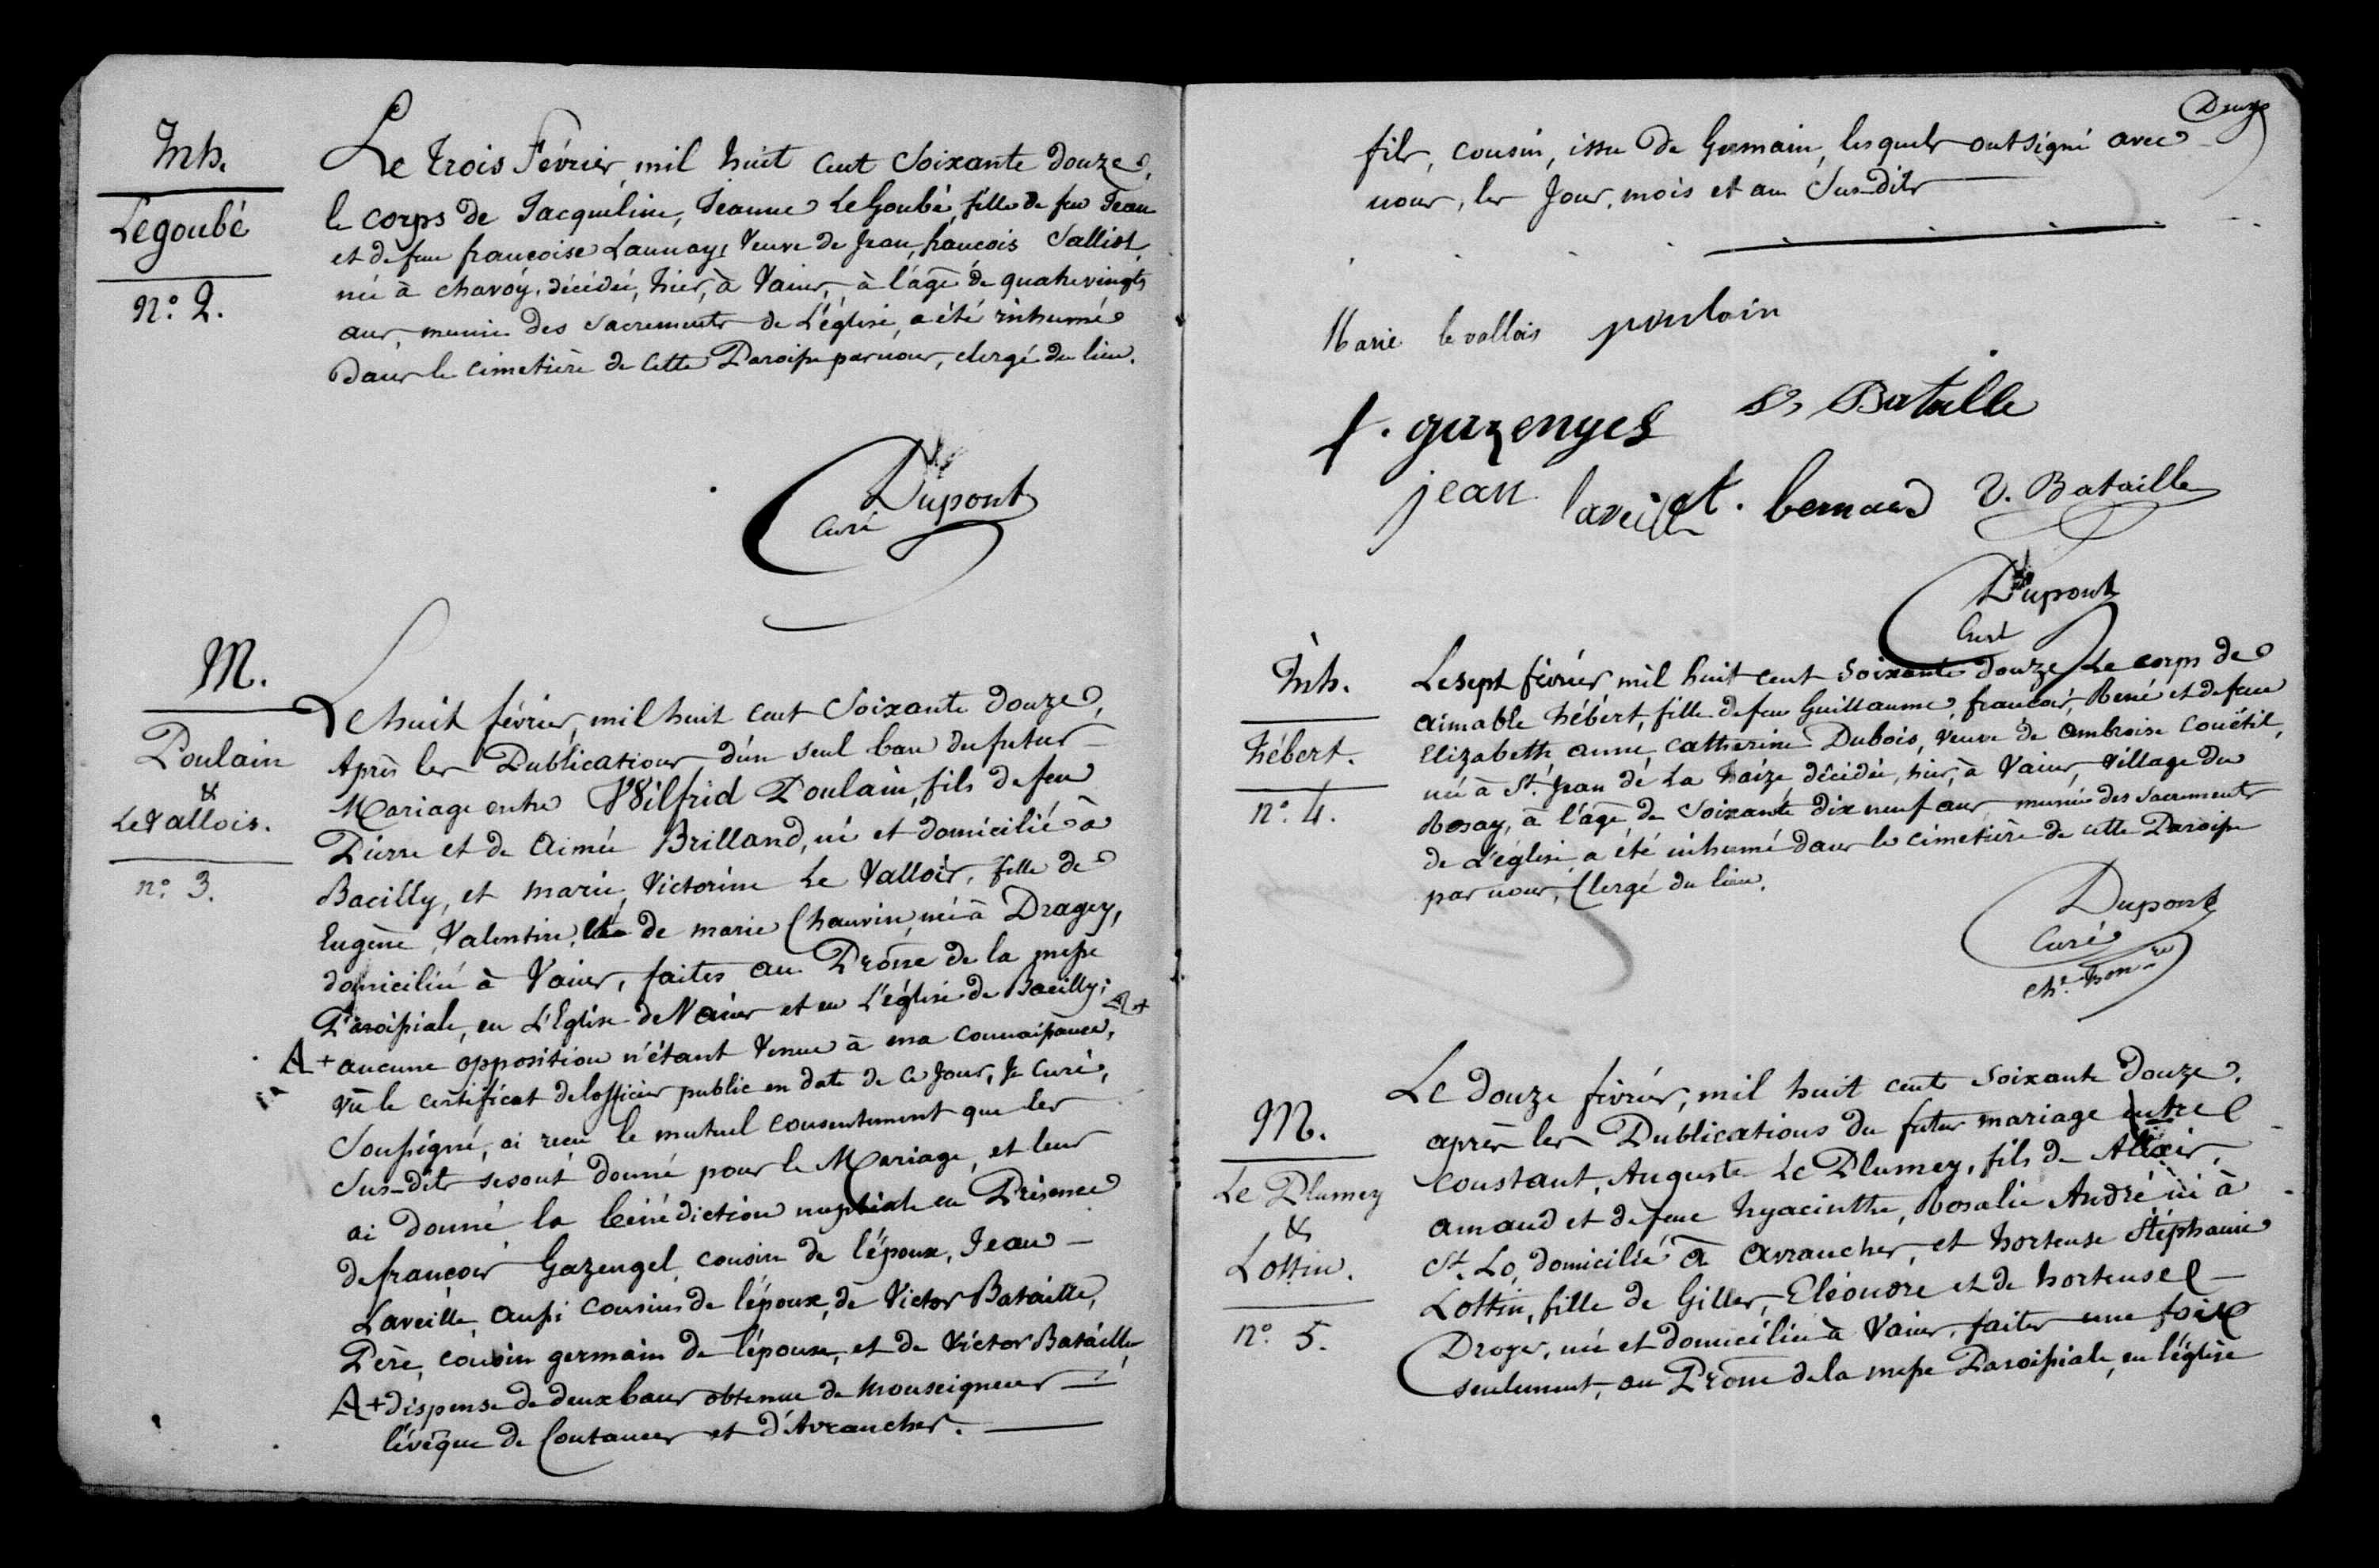 Inh.
Legoubé
N.° 2.
Le trois Février, mil huit cent Soixante douze,
le corps de Jacqueline, Jeanne LeGoubé, fille de feu Jean
et de feue françoise Launay, Veuve de Jean, françois Salliot,
née à Chavoy, décédée, hier, à Vains, à l'âge de quatrevingts
ans, munie des Sacrements de L'église, a été inhumée
dans le cimetière de cette Paroisse par nous, clergé du lieu.
Dupont
Curé
M.
Poulain
&
LeVallois.
n.° 3.
Le huit février, mil huit cent Soixante douze,
Après les Publications d'un seul ban du futur
Mariage entre Wilfrid Poulain, fils de feu
Pierre et de Aimée Brilland, né et domicilié à
Bacilly, et marie, Victorine Le Vallois, fille de
Eugène, Valentin, et de marie Chauvin, née à Dragey,
domiciliée à Vains, faites au Prône de la messe
Paroissiale, en L'Eglise de Vains et en L'église de Bacilly; A+
A+ aucune opposition n'étant Venue à ma connaissance,
Vu le certificat de lofficier public en date de ce Jour, Je Curé,
Soussigné, ai reçu le mutuel consentement que les
Sus-dits sesont donné pour le Mariage, et leur
ai donné la bénédiction nuptiale en Présence
de françois Gazengel, cousin de l'époux, Jean
Laveille, aussi cousin de l'époux, de Victor Bataille,
Père, cousin germain de l'épouse, et de Victor Bataille,
A+ dispense de deux bans obtenue de Monseigneur
l'évêque de Coutances et d'Avranches.
Deuze
fils, cousin, issu de Germain, lesquels ont signé avec
nous, les Jour, mois et an Sus-dits
Marie levallois poulain
f. gazenges Bataille
jean laveille t. bernard V. Bataille
Dupont
Curé
Inh.
Hébert.
n.° 4.
Le sept février mil huit cent Soixante douze, Le corps de
aimable hébert, fille de feu Guillaume, françois, René et de feue
Elizabeth, anne, Catherine Dubois, Veuve de Ambroise Couëtil,
née à St. Jean de La Haize, décédée, hier, à Vains, Village du
Rosay, à l'âge de Soixante dix neuf ans, munie des Sacrements
de L'église, a été inhumé dans le cimetière de cette Paroisse
par nous, Clergé du lieu.
Dupont
Curé
Ch.e hon.re
M.
Le Plumey
&
Lottin.
n.° 5.
Le douze février, mil huit cent Soixante douze,
après les Publications du futur mariage entre
Constant, Auguste Le Plumey, fils de Alexis,
amand et de feue hyacinthe, Rosalie André né à
St. Lo, domicilié à Avranches, et hortense Stéphanie
Lottin, fille de Gilles, Eléonore et de hortense
Droger, née et domiciliée à Vains, faites une fois
seulement, au Prône de la messe Paroissiale, en l'église